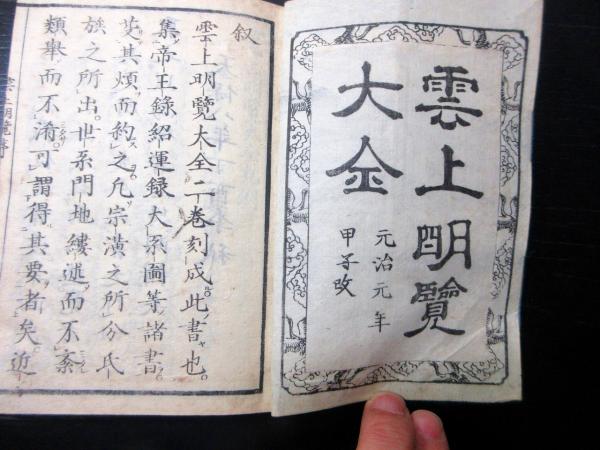 雲上明覽
大全
元治元年
甲子改
叙
雲上明覽大全二卷刻成此書也
集帝王錄紹運録大系圖等諸書
芟其煩而約之凡宗潢之所分氏
族之所出世系門地縷述而不紊
類舉而不淆可謂得其要者矣近